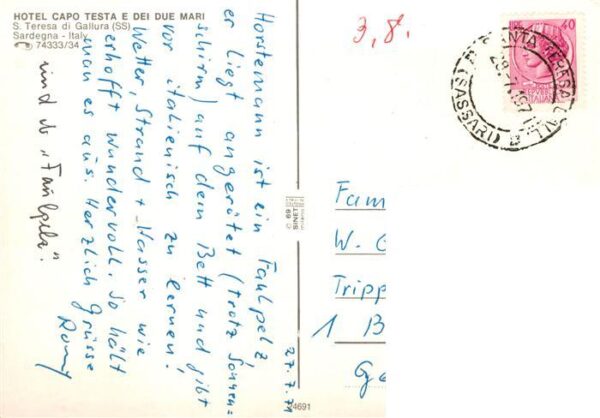 HOTEL CAPO TESTA E DEI DUE MARI
S. Teresa di Gallura (SS)
Sardegna - Italy
74333/34
27.7.71
Horstemann ist ein Faulpelz,
er liegt angerötet (trotz Sonnen=
schirm) auf dem Bett und gibt
vor italienisch zu lernen!
Wetter, Strand + Wasser wie
erhofft wundervoll. So hält
man es aus. Herzlich Grüsse
Romy
und d. "Faulpelz."
© 69
SINET
milano
4691
3,8.
40
SANTA TERESA GALL
(SASSARI)
Fam
W. G
Tripp
1 B